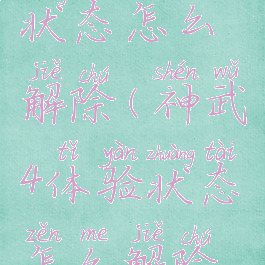 状态怎么
jiě chú shén wǔ
解除(神武
tǐ yàn zhuàng tài
4体验状态
zěn me jiě chú
怎么解除